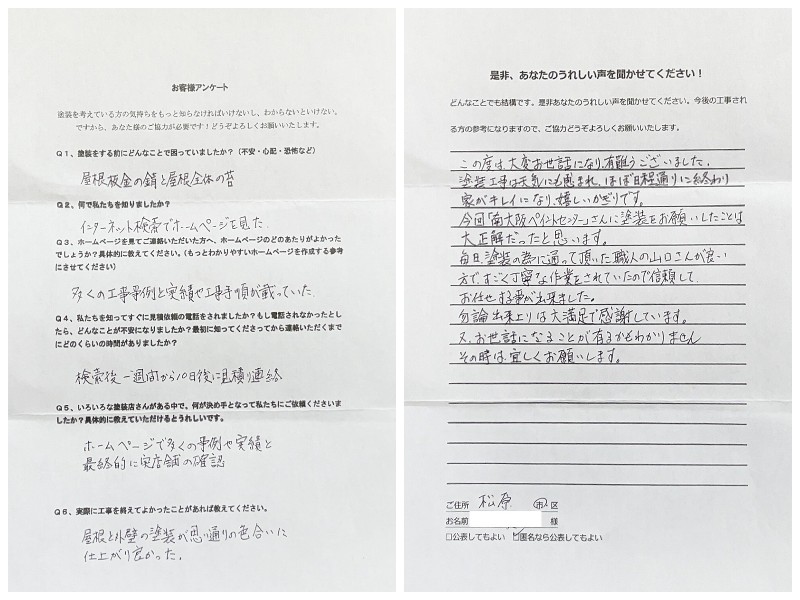 お客様アンケート
塗装を考えている方の気持ちをもっと知らなければいけないし、わからないといけない。
ですから、あなた様のご協力が必要です！どうぞよろしくお願いいたします。
Q1、塗装をする前にどんなことで困っていましたか？（不安・心配・恐怖など）
屋根板金の錆と屋根全体の苔
Q2、何で私たちを知りましたか？
インターネット検索でホームページを見た
Q3、ホームページを見てご連絡いただいた方へ、ホームページのどのあたりがよかった
でしょうか？具体的に教えてください。（もっとわかりやすいホームページを作成する参考
にさせてください）
多くの工事事例と実績や工事手順が載っていた
Q4、私たちを知ってすぐに見積依頼の電話をされましたか？もし電話されなかったとし
たら、どんなことが不安になりましたか？最初に知ってくださってから連絡いただくまで
にどのくらいの時間がありましたか？
検索後一週間から10日後に見積り連絡
Q5、いろいろな塗装店さんがある中で、何が決め手となって私たちにご依頼くださいま
したか？具体的に教えていただけるとうれしいです。
ホームページで多くの事例や実績と
最終的に実店舗の確認
Q6、実際に工事を終えてよかったことがあれば教えてください。
屋根と外壁の塗装が思い通りの色合いに
仕上がり良かった。
是非、あなたのうれしい声を聞かせてください！
どんなことでも結構です。是非あなたのうれしい声を聞かせてください。今後の工事され
る方の参考になりますので、ご協力どうぞよろしくお願いいたします。
この度は、大変お世話になり、有難うございました。
塗装工事は天気にも恵まれ、ほぼ日程通りに終わり
家がキレイになり、嬉しいかぎりです。
今回「南大阪ペイントセンター」さんに塗装をお願いしたことは
大正解だったと思います。
毎日、塗装の為に通って頂いた職人の山口さんが良い
方で、すごく丁寧な作業をされていたので信頼して
お任せする事が出来ました。
勿論出来上りは大満足で感謝しています。
又、お世話になることが有るかもわかりません
その時は、宜しくお願いします。
ご住所 松原 市・区
お名前 様
□公表してもよい ☑匿名なら公表してもよい